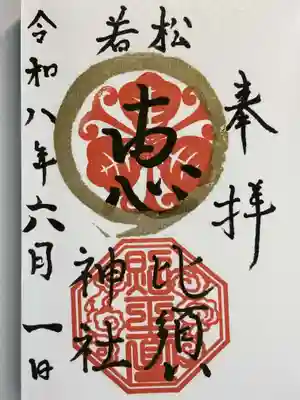 奉拝
若松
恵
比須
神社
令和八年六月一日